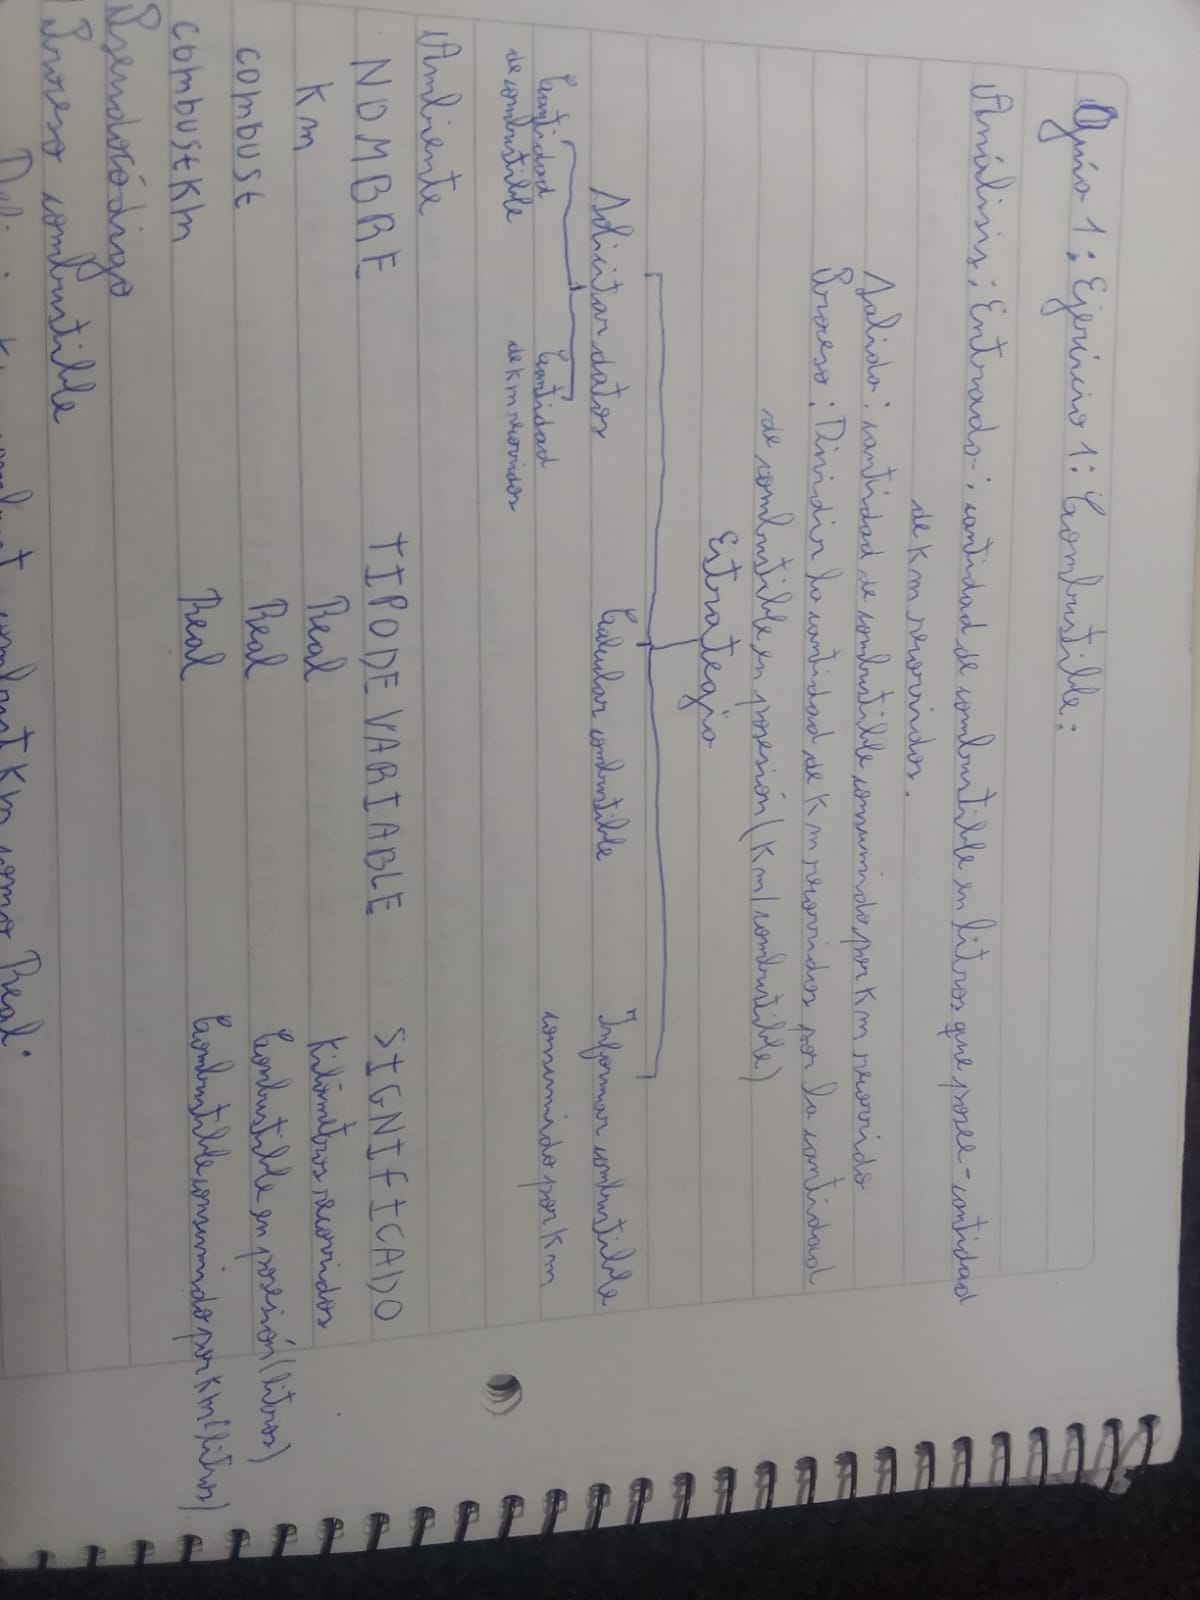 Guía 1: Ejercicio 1: Combustible:
Análisis: Entrada: cantidad de combustible en litros que posee - cantidad
de Km recorridos.
Salida: cantidad de combustible consumido por Km recorrido
Proceso: Dividir la cantidad de Km recorridos por la cantidad
de combustible en posesión (Km/combustible)
Estrategia
Solicitar datos Calcular combustible Informar combustible
consumido por Km
Cantidad Cantidad
de combustible de Km recorridos
Ambiente
NOMBRE TIPO DE VARIABLE SIGNIFICADO
Km Real Kilómetros recorridos
combust Real Combustible en posesión (litros)
combustKm Real Combustible consumido por Km (litros)
Pseudocódigo
Proceso combustible
combust combustKm como Real;